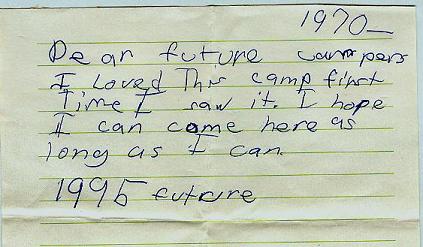 1970_
Dear future campers
I loved This camp first
Time I saw it. I hope
I can come here as
long as I can.
1995 future